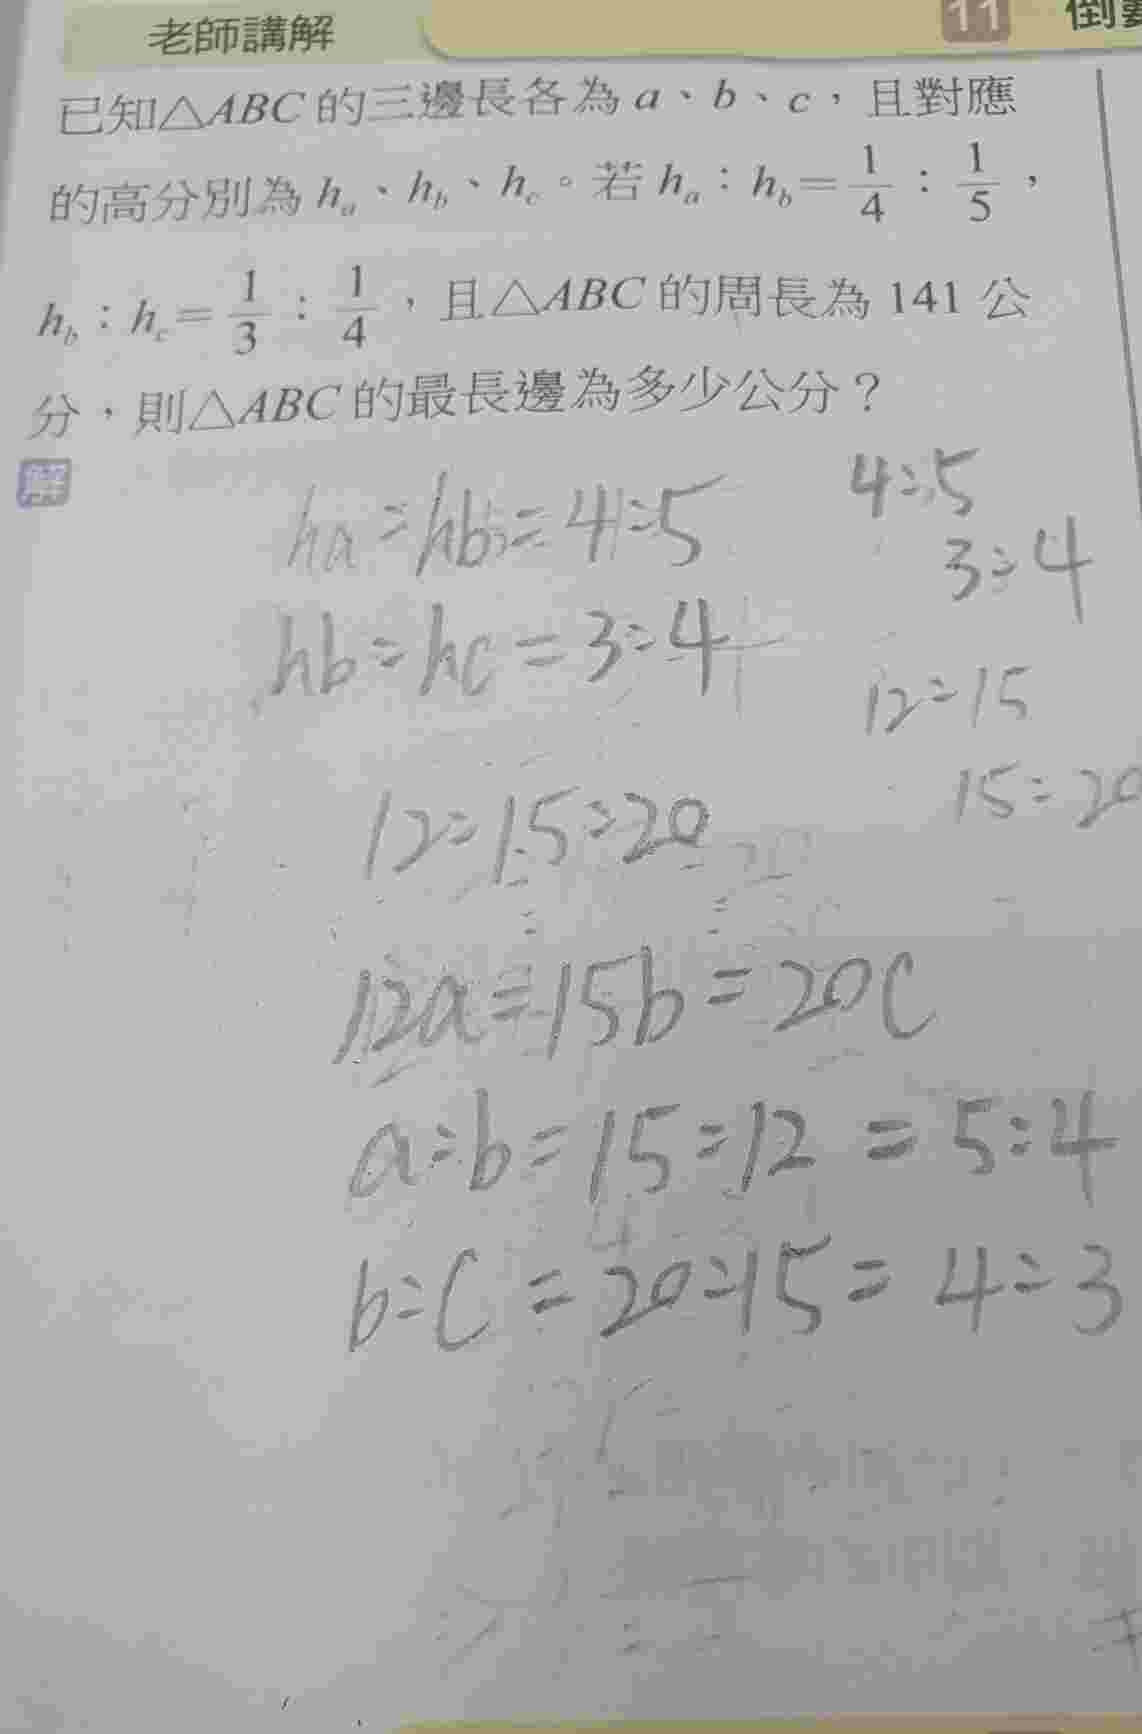 老師講解
11 倒
已知△ABC 的三邊長各為 a、b、c，且對應
的高分別為 hₐ、h_b、h_c。若 hₐ：h_b＝1/4：1/5，
h_b：h_c＝1/3：1/4，且△ABC 的周長為 141 公
分，則△ABC 的最長邊為多少公分？
解
ha:hb=4:5
4:5
3:4
hb:hc=3:4
12:15
15:20
12:15:20
12a=15b=20c
a:b=15:12=5:4
b:c=20:15=4:3